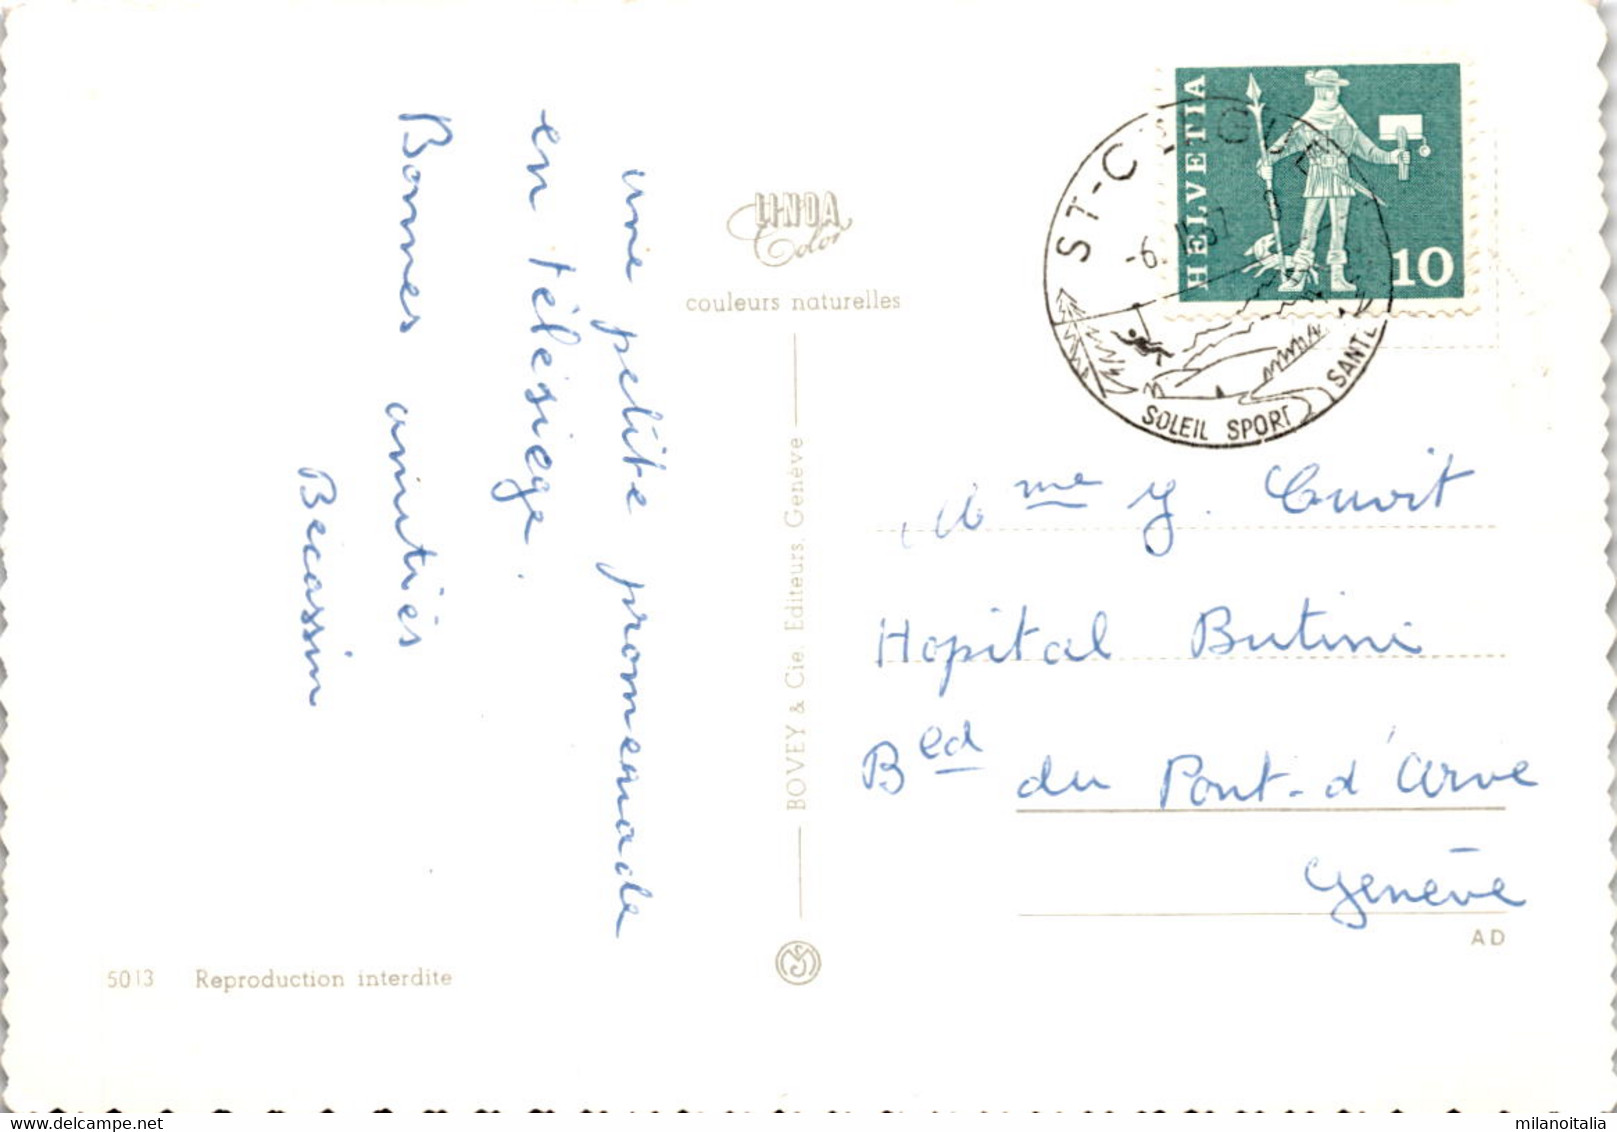 une petite promenade
en télésiège.
Bonnes amitiés
Becassin
LINDA
Color
couleurs naturelles
BOVEY & Cie, Editeurs, Genève
5013 Reproduction interdite
HELVETIA
10
ST-C
-6.
SOLEIL SPORT SANTÉ
Mme Y. Cuvit
Hopital Butini
Bed du Pont-d'Arve
Genève
AD
milanoitalia